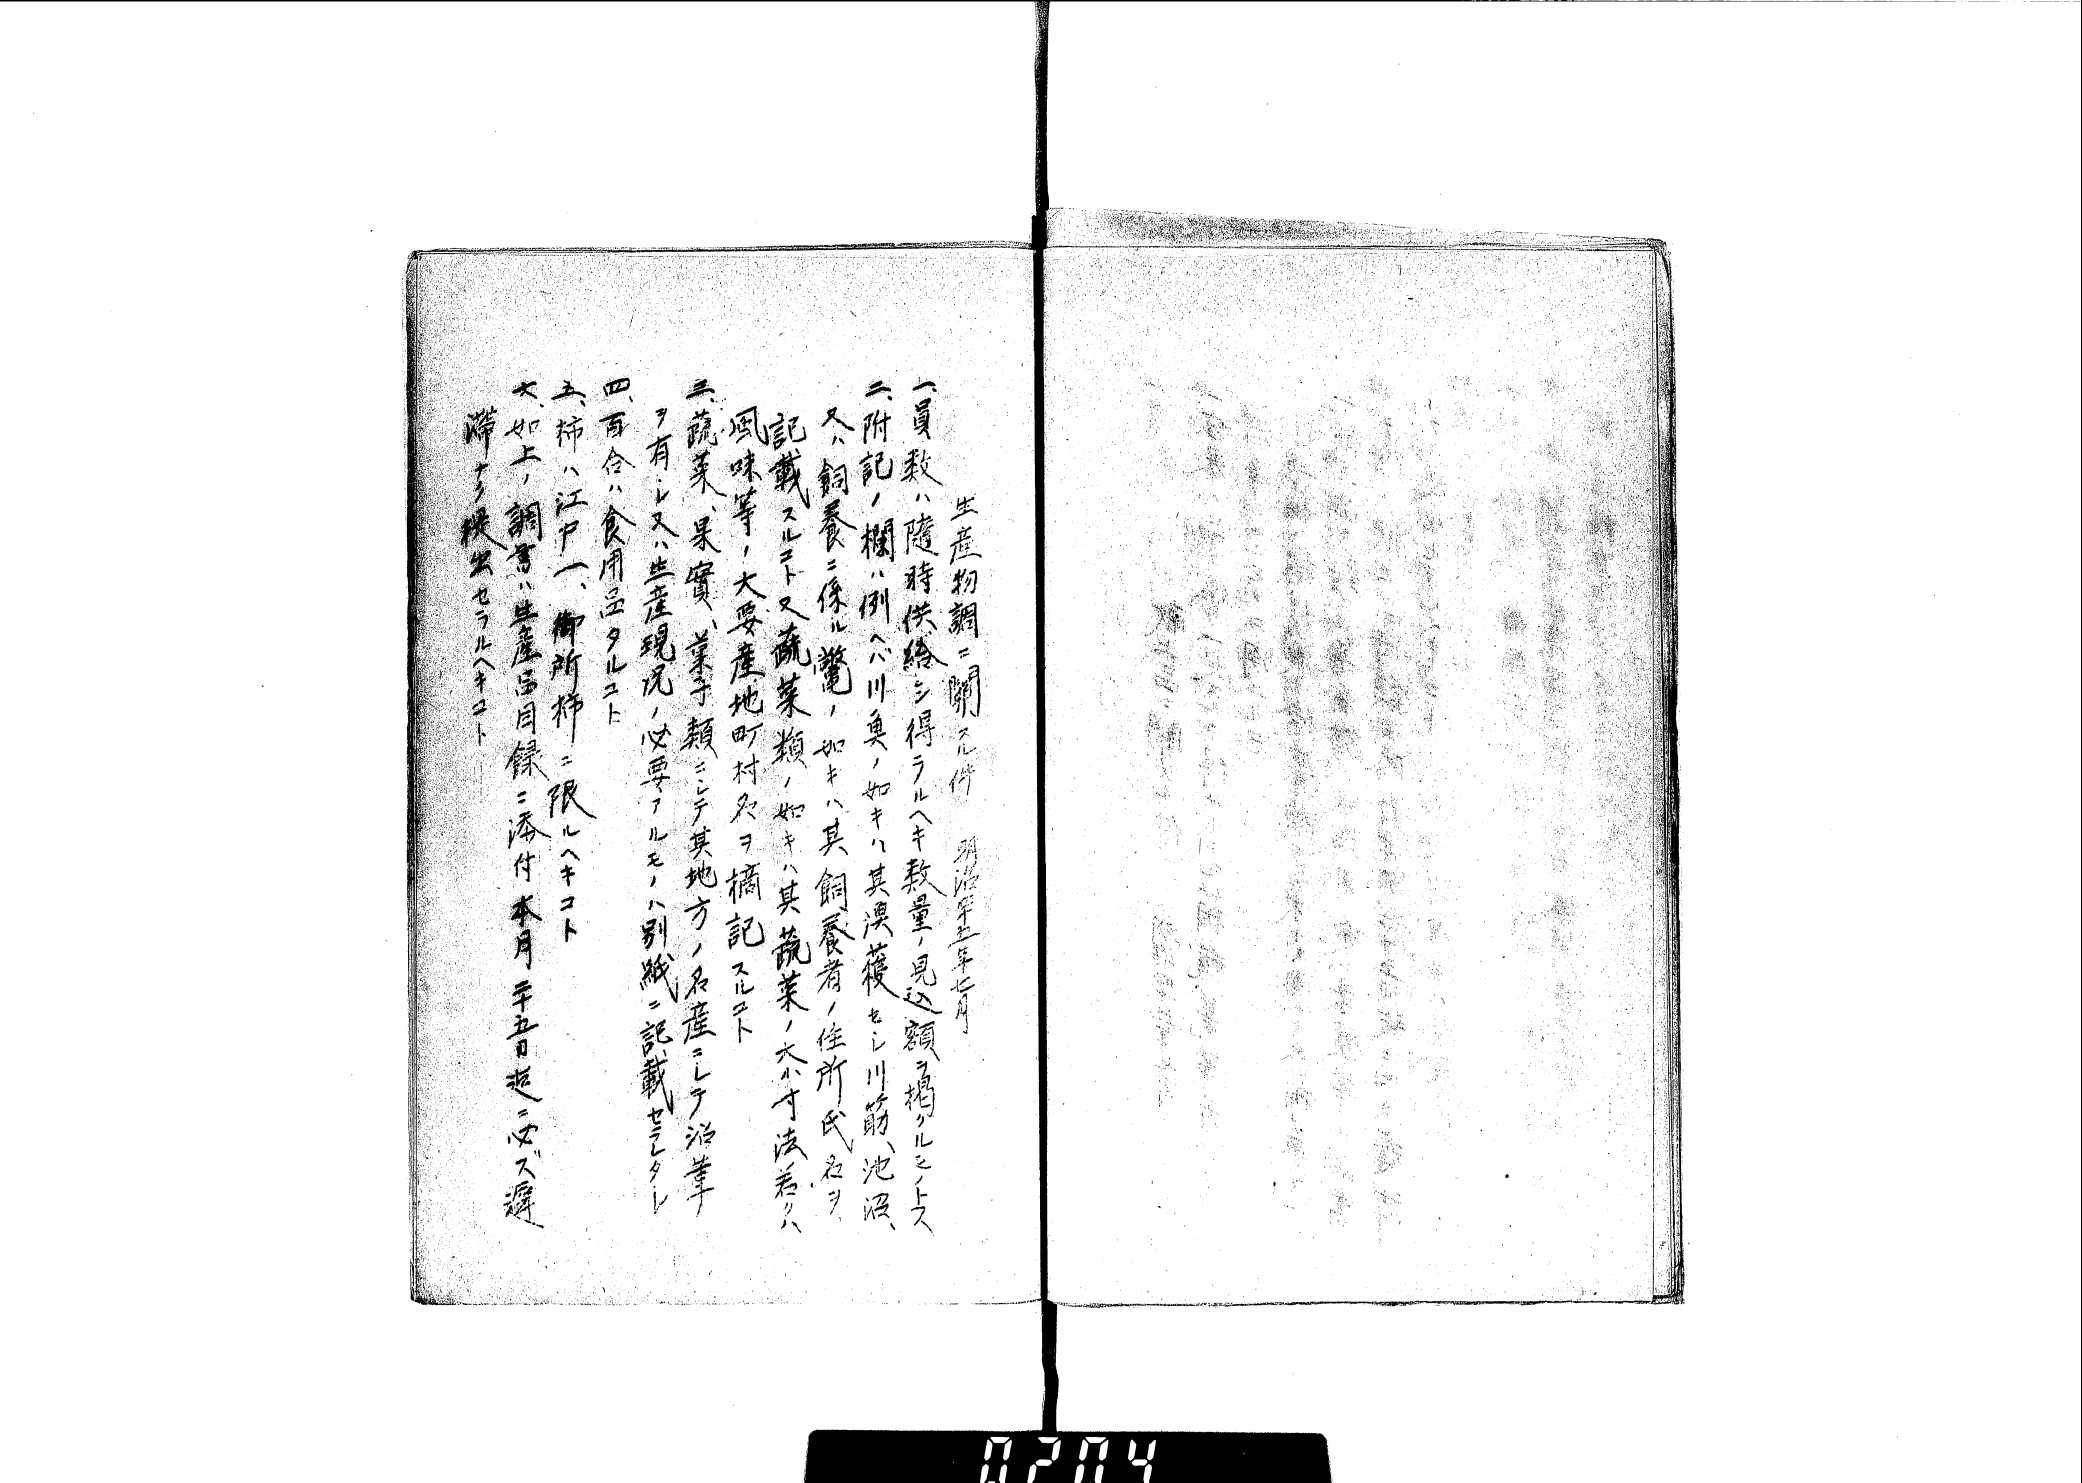 生産物調ニ関スル件　明治四十五年七月
一、員数ハ随時供給シ得ラルヘキ数量ノ見込額ヲ掲クルモノトス
二、附記ノ欄ハ例ヘバ川魚ノ如キハ其漁獲セシ川筋、池沼、
又ハ飼養ニ係ル鼈ノ如キハ其飼養者ノ住所氏名ヲ
記載スルコト又蔬菜類ノ如キハ其蔬菜ノ大小寸法若クハ
風味等ノ大要産地町村名ヲ摘記スルコト
三、蔬菜、果實、菓子類ニシテ其地方ノ名産ニシテ沿革
ヲ有シ又ハ生産現況ノ必要アルモノハ別紙ニ記載セラレタシ
四、百合ハ食用品タルコト
五、柿ハ江戸一、御所柿ニ限ルヘキコト
六、如上ノ調書ハ生産品目録ニ添付本月二十五日迄ニ必ズ遅
滞ナク提出セラルヘキコト
0204